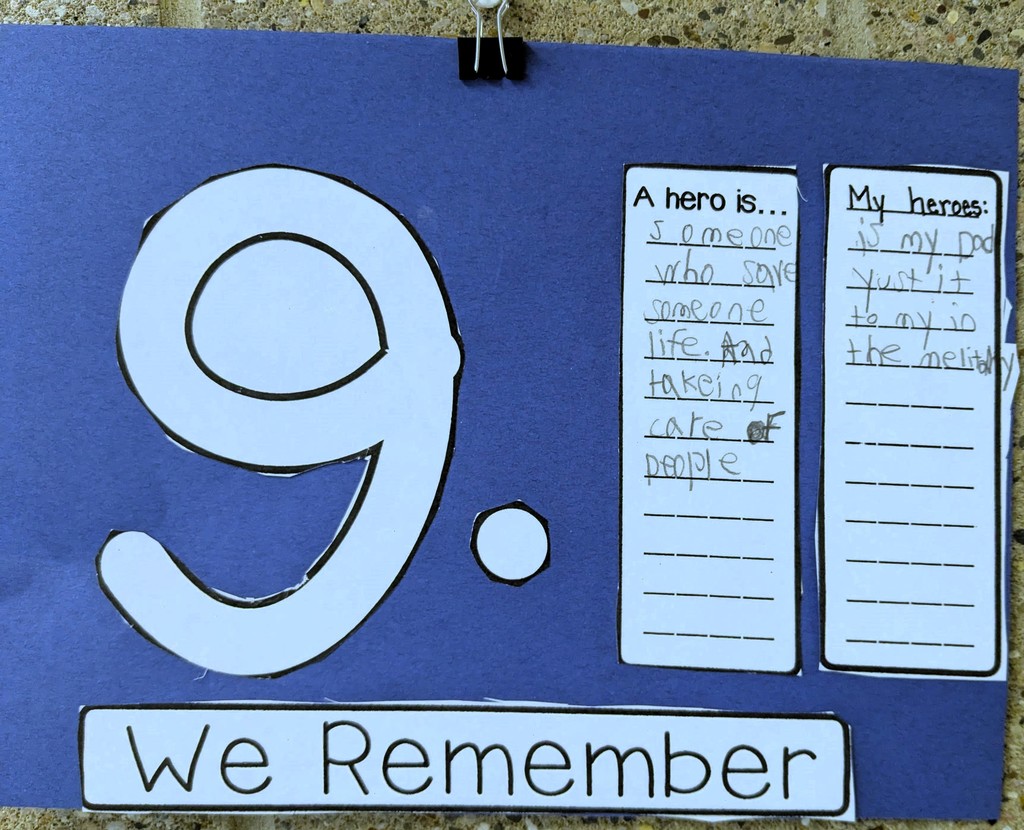 9.
A hero is...
someone
who save
someone
life. And
takeing
care of
people
My heroes:
is my Dad
yust it
to my in
the melitary
We Remember